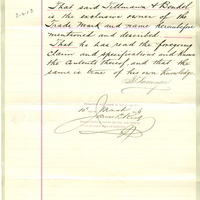 2413
That said Tillmann & Bendel
is the exclusive owner of the
Trade Mark and name hereinbefore
mentioned and described
That he has read the foregoing
Claim and specifications and knows
the contents thereof, and that the
same is true of his own knowledge